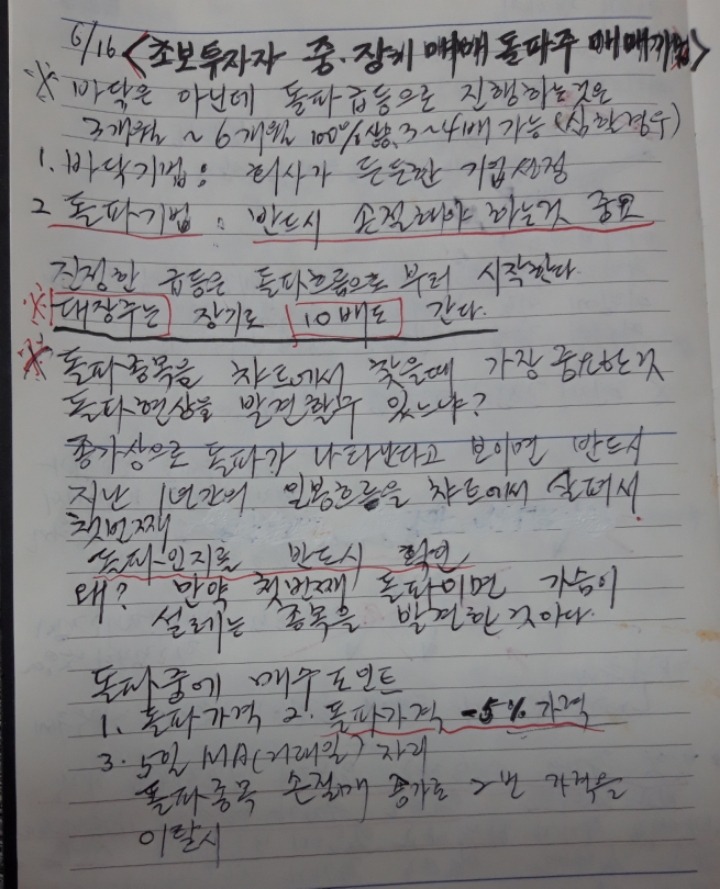 6/16 <초보투자자 중.장기 매매 돌파주 매매기법>
※ 바닥은 아닌데 돌파급등으로 진행하는것은
3개월 ~ 6개월 100%상승, 3~4배 가능 (심한경우)
1. 바닥기법: 회사가 튼튼한 기업선정
2 돌파기법. 반드시 손절해야 하는것 중요
진정한 급등은 돌파흐름으로 부터 시작한다.
※ 대장주는 장기로 10배도 간다.
※ 돌파종목을 챠트에서 찾을때 가장 중요한것
돌파현상을 발견할수 있느냐?
종가상으로 돌파가 나타난다고 보이면 반드시
지난 1년간의 일봉흐름을 챠트에서 살펴서
첫번째
돌파인지를 반드시 확인
왜? 만약 첫번째 돌파이면 가슴이
설레는 종목을 발견한것이다.
돌파중에 매수포인트
1. 돌파가격 2. 돌파가격 -5% 가격
3. 5일 MA(거래일) 자리
돌파종목 손절매 종가로 2번 가격을
이탈시